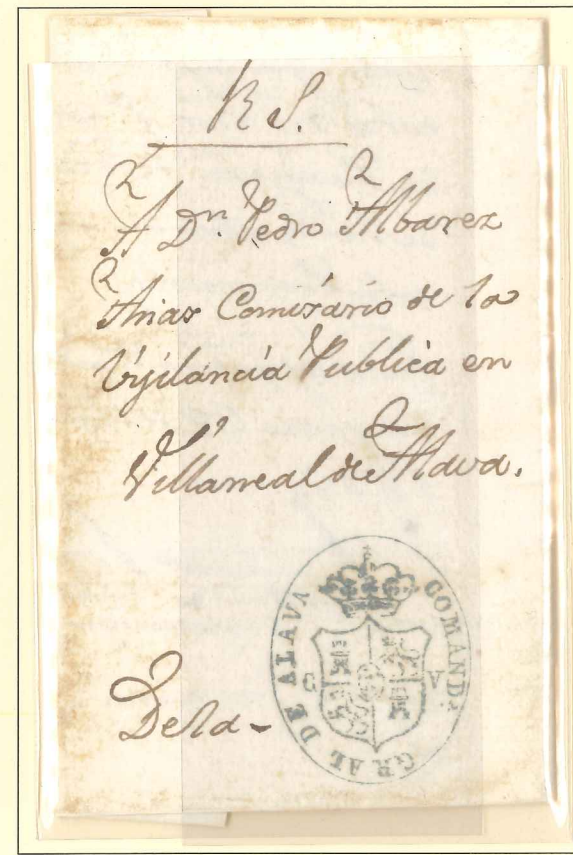 R S.
A Dn. Pedro Albarez
Arias Comisario de la
Vijilancia Publica en
Villarreal de Alava.
COMANDa. GRAL DE ALAVA
C V
De la -